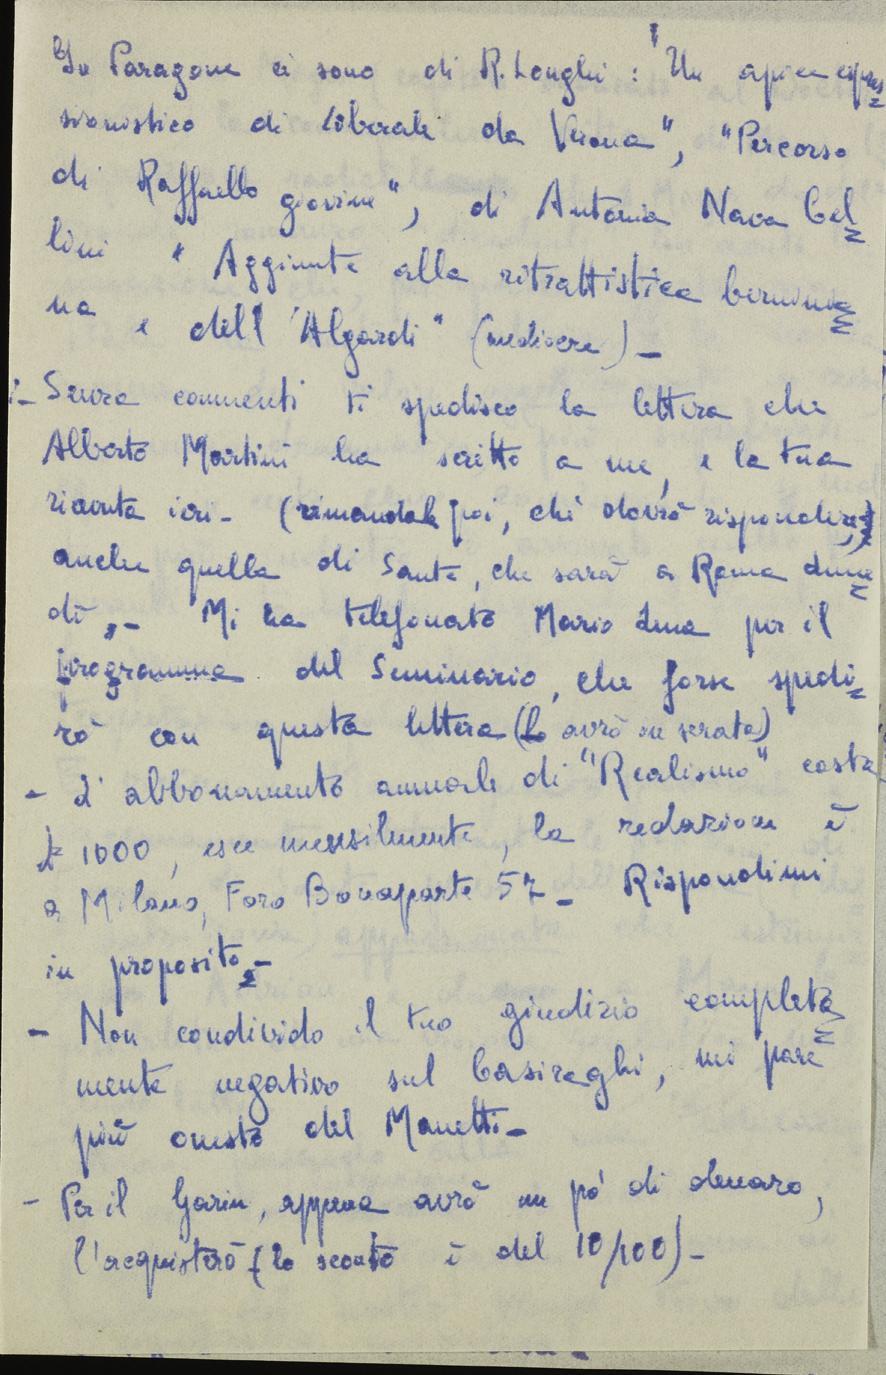 In Paragone ci sono di R. Longhi: "Un apice espres=
sionistico di Liberale da Verona", "Percorso
di Raffaello giovine", di Antonia Nava Cel=
lini "Aggiunte alla ritrattistica berninia=
na e dell'Algardi" (mediocre)_
Senza commenti ti spedisco la lettera che
Alberto Martini ha scritto a me, e la tua
ricevuta ieri_ (rimandale poi, ché dovrò rispondere,)
anche quella di Sante, che sarà a Roma lune=
dì._ Mi ha telefonato Mario Luna per il
programma del Seminario, che forse spedi=
rò con questa lettera (lo avrò in serata)
- L'abbonamento annuale di "Realismo" costa
£ 1000, esce mensilmente, la redazione è
a Milano, Foro Bonaparte 57_ Rispondimi
in proposito_
- Non condivido il tuo giudizio completa=
mente negativo sul Casiraghi, mi pare
più onesto del Manetti_
- Per il Garin, appena avrò un pó di denaro,
l'acquisterò (lo sconto è del 10/100)_